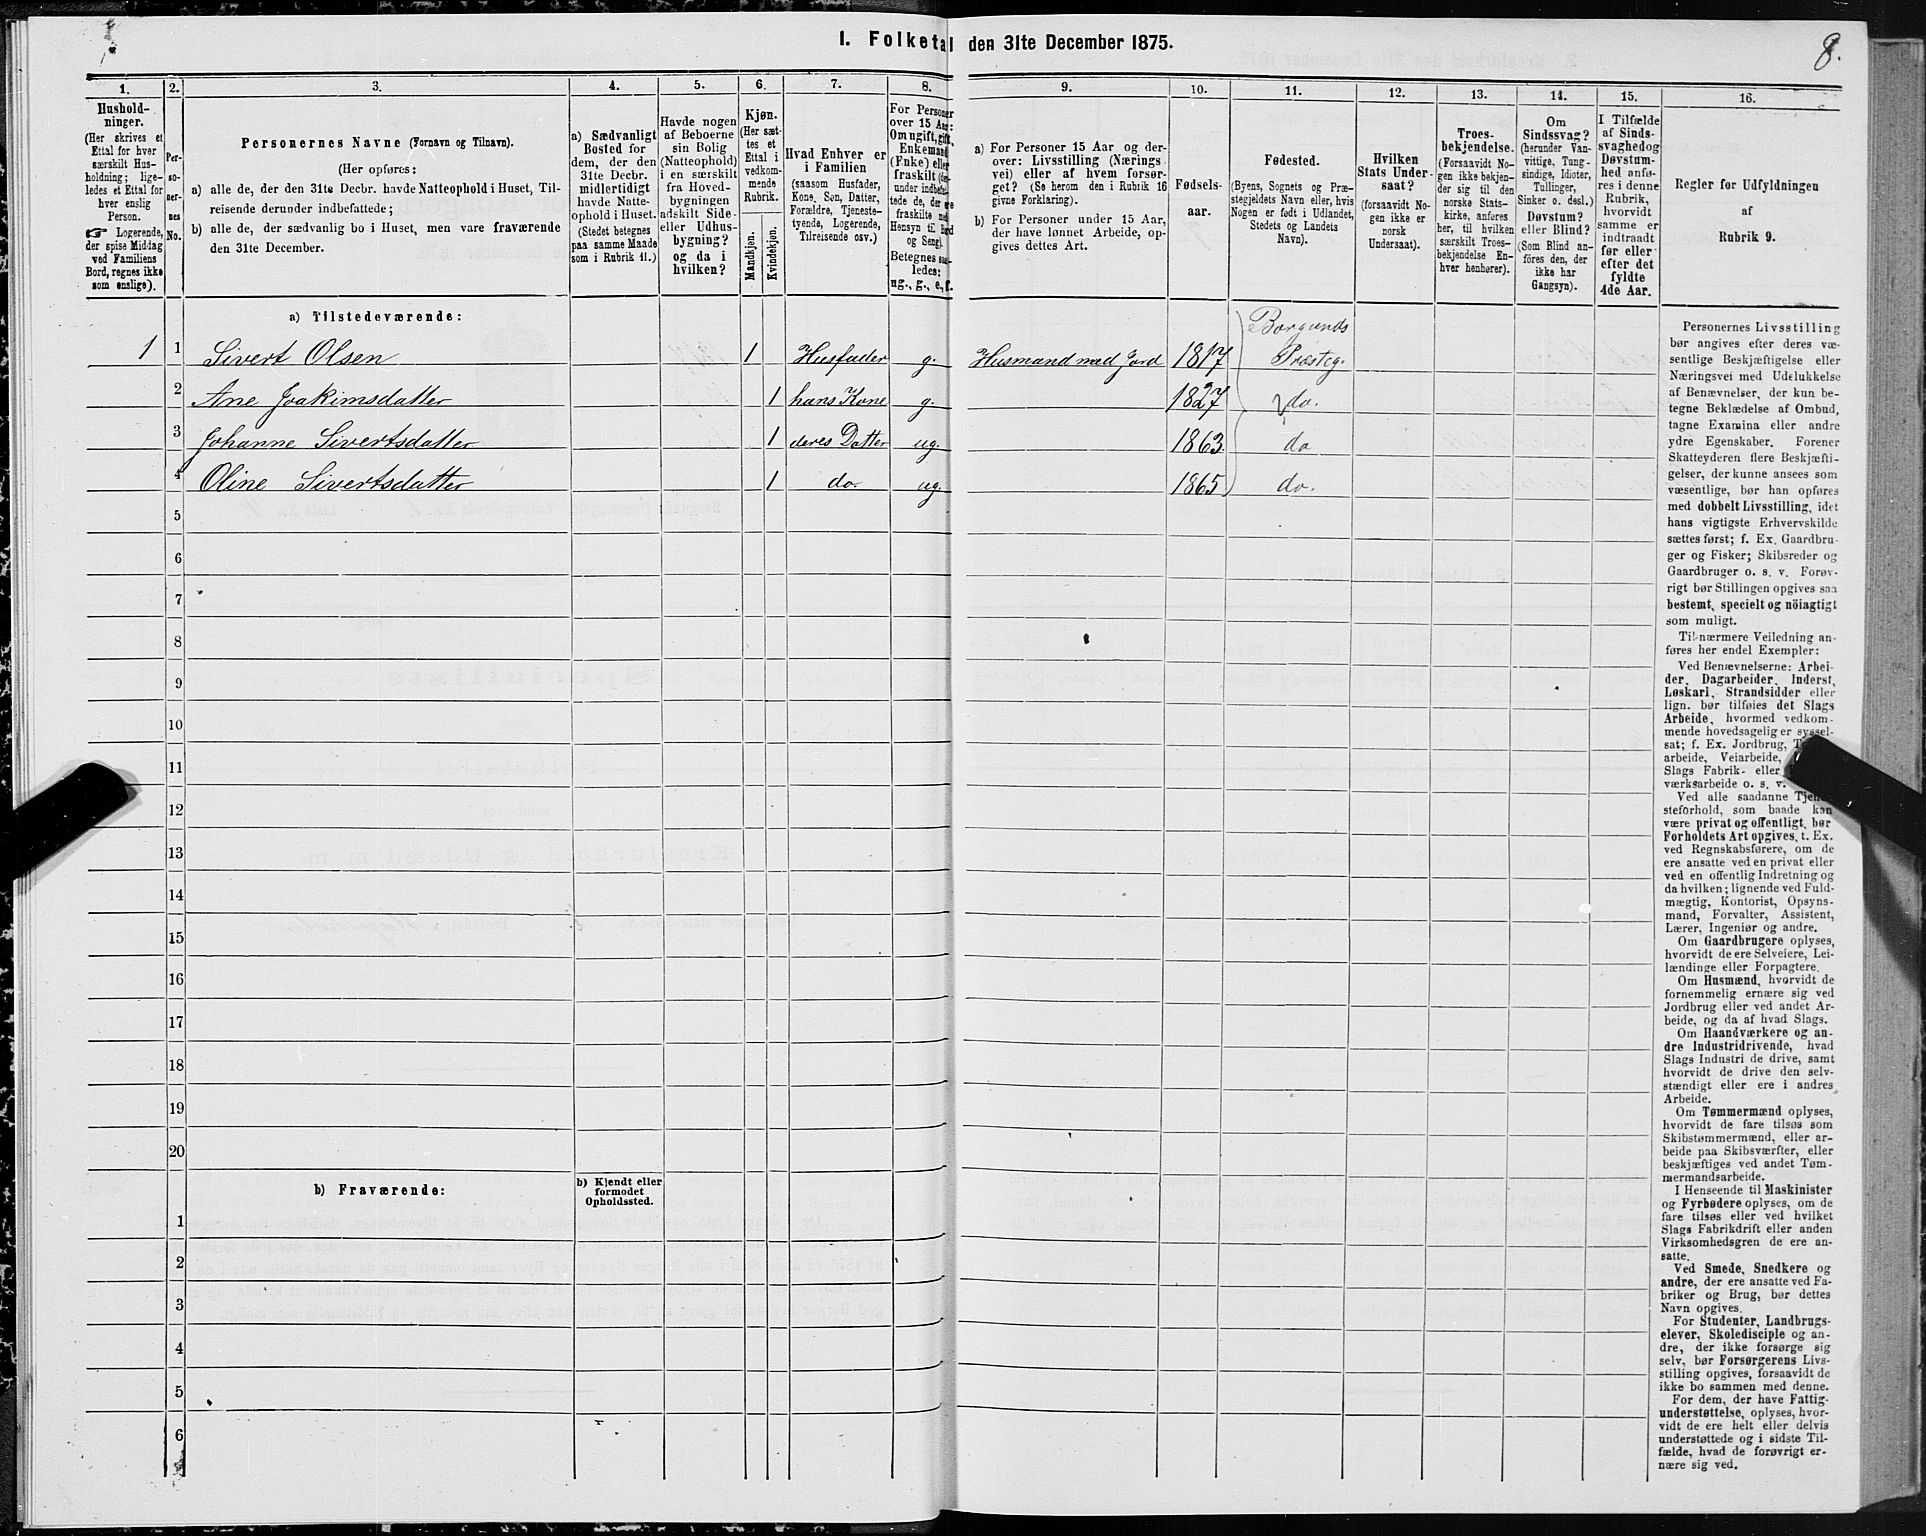 I. Folketal den 31te December 1875.
8.
1.
2.
3.
4.
5.
6.
7.
8.
9.
10.
11.
12.
13.
14.
15.
16.
Hushold-
ninger.
(Her skrives et
Ettal for hver
særskilt Hus-
holdning; lige-
ledes et Ettal for
hver enslig
Person.
☞ Logerende,
der spise Middag
ved Familiens
Bord, regnes ikke
som enslige).
Per-
so-
ner-
nes
No.
Personernes Navne (Fornavn og Tilnavn).
(Her opføres:
a) alle de, der den 31te Decbr. havde Natteophold i Huset, Til-
reisende derunder indbefattede;
b) alle de, der sædvanlig bo i Huset, men vare fraværende
den 31te December.
a) Sædvanligt
Bosted for
dem, der den
31te Decbr.
midlertidigt
havde Natte-
ophold i Huset.
(Stedet betegnes
paa samme Maade
som i Rubrik 11.)
Havde nogen
af Beboerne
sin Bolig
(Natteophold)
i en særskilt
fra Hoved-
bygningen
adskilt Side-
eller Udhus-
bygning?
og da i
hvilken?
Kjøn.
(Her sæt-
tes et
Ettal i
vedkom-
mende
Rubrik.
Mandkjøn.
Kvindekjøn.
Hvad Enhver er
i Familien
(saasom Husfader,
Kone, Søn, Datter,
Forældre, Tjeneste-
tyende, Logerende,
Tilreisende osv.)
For Personer
over 15 Aar:
Om ugift, gift,
Enkemand
(Enke) eller
fraskilt
Betegnes saa-
ledes:
ug., g., e., f.
a) For Personer 15 Aar og der-
over: Livsstilling (Nærings-
vei) eller af hvem forsør-
get? (Se herom den i Rubrik 16
givne Forklaring).
b) For Personer under 15 Aar,
der have lønnet Arbeide, op-
gives dettes Art.
Fødsels-
aar.
Fødested.
(Byens, Sognets og Præ-
stegjeldets Navn eller, hvis
Nogen er født i Udlandet,
Stedets og Landets
Navn).
Hvilken
Stats Under-
saat?
(forsaavidt No-
gen ikke er
norsk
Undersaat).
Troes-
bekjendelse.
(Forsaavidt No-
gen ikke bekjen-
der sig til den
norske Stats-
kirke, anføres
her, til hvilken
særskilt Troes-
bekjendelse En-
hver henhører).
Om
Sindssvag?
(herunder Van-
vittige, Tung-
sindige, Idioter,
Tullinger,
Sinker o. desl.)
Døvstum?
eller Blind?
(Som Blind an-
føres den, der
ikke har
Gangsyn).
I Tilfælde
af Sinds-
svaghed og
Døvstum-
hed anfø-
res i denne
Rubrik,
hvorvidt
samme er
indtraadt
før eller
efter det
fyldte
4de Aar.
Regler for Udfyldningen
af
Rubrik 9.
a) Tilstedeværende:
1 1 Sivert Olsen 1 Husfader g. Husmand med Jord 1817 Borgunds Præsteg.
2 Ane Joakimsdatter 1 hans Kone g. 1827 do.
3 Johanne Sivertsdatter 1 deres Datter ug. 1863. do
4 Oline Sivertsdatter 1 do. ug. 1865 do.
5
6
7
8
9
10
11
12
13
14
15
16
17
18
19
20
b) Fraværende:
b) Kjendt eller
formodet
Opholdssted.
1
2
3
4
5
6
Personernes Livsstilling
bør angives efter deres væ-
sentlige Beskjæftigelse eller
Næringsvei med Udelukkelse
af Benævnelser, der kun be-
tegne Beklædelse af Ombud,
tagne Examina eller andre
ydre Egenskaber. Forener
Skatteyderen flere Beskjæfti-
gelser, der kunne ansees som
væsentlige, bør han opføres
med dobbelt Livsstilling, idet
hans vigtigste Erhvervskilde
sættes først; f. Ex. Gaardbru-
ger og Fisker; Skibsreder og
Gaardbruger o. s. v. Forøv-
rigt bør Stillingen opgives saa
bestemt, specielt og nöiagtigt
som muligt.
Til nærmere Veiledning an-
føres her endel Exempler:
Ved Benævnelserne: Arbei-
der, Dagarbeider, Inderst,
Løskarl, Strandsidder eller
lign. bør tilføies det Slags
Arbeide, hvormed vedkom-
mende hovedsagelig er syssel-
sat; f. Ex. Jordbrug,
arbeide, Veiarbeide,
Slags Fabrik- eller
værksarbeide o. s. v.
Ved alle saadanne Tjene-
steforhold, som baade kan
være privat og offentligt, bør
Forholdets Art opgives, t. Ex.
ved Regnskabsførere, om de
ere ansatte ved en privat eller
ved en offentlig Indretning og
da hvilken; lignende ved Fuld-
mægtig, Kontorist, Opsyns-
mand, Forvalter, Assistent,
Lærer, Ingeniør og andre.
Om Gaardbrugere oplyses,
hvorvidt de ere Selveiere, Lei-
lændinge eller Forpagtere.
Om Husmænd, hvorvidt de
fornemmelig ernære sig ved
Jordbrug eller ved andet Ar-
beide, og da af hvad Slags.
Om Haandværkere og an-
dre Industridrivende, hvad
Slags Industri de drive, samt
hvorvidt de drive den selv-
stændigt eller ere i andres
Arbeide.
Om Tømmermænd oplyses,
hvorvidt de fare tilsøs som
Skibstømmermænd, eller ar-
beide paa Skibsværfter, eller
beskjæftiges ved andet Tøm-
mermandsarbeide.
I Henseende til Maskinister
og Fyrbødere oplyses, om de
fare tilsøs eller ved hvilket
Slags Fabrikdrift eller anden
Virksomhedsgren de ere an-
satte.
Ved Smede, Snedkere og
andre, der ere ansatte ved Fa-
briker og Brug, bør dettes
Navn opgives.
For Studenter, Landbrugs-
elever, Skoledisciple og an-
dre, der ikke forsørge sig
selv, bør Forsørgerens Livs-
stilling opgives, forsaavidt de
ikke bo sammen med denne.
For dem, der have Fattig-
understøttelse, oplyses, hvor-
vidt de ere helt eller delvis
understøttede og i sidste Til-
fælde, hvad de forøvrigt er-
nære sig ved.